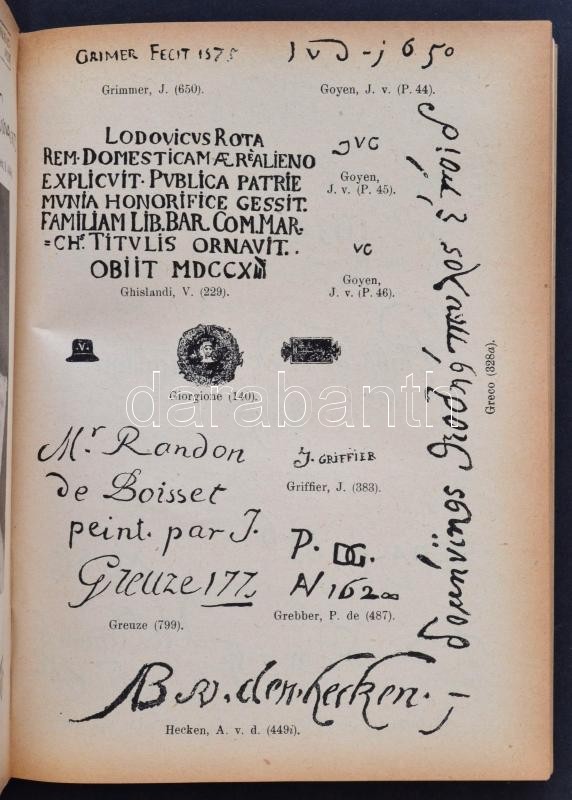 GRIMER FECIT 1575
Grimmer, J. (650).
Goyen, J. v. (P. 44).
LODOVICVS ROTA
REM·DOMESTICAM ÆRE ALIENO
EXPLICVIT· PVBLICA PATRIE
MVNIA HONORIFICE GESSIT.
FAMILIAM LIB. BAR. COM. MAR-
=CHS. TITVLIS ORNAVIT..
OBIIT MDCCXII
Ghislandi, V. (229).
JVG
Goyen,
J. v. (P. 45).
VG
Goyen,
J. v. (P. 46).
Greco (328a).
.V.
Giorgione (140).
darabanth
Mr Randon
de Boisset
peint. par J.
Greuze 177.
Greuze (799).
J. GRIFFIER
Griffier, J. (383).
P. DG.
AN 1628
Grebber, P. de (487).
AB v. den. hecken.
Hecken, A. v. d. (449i).